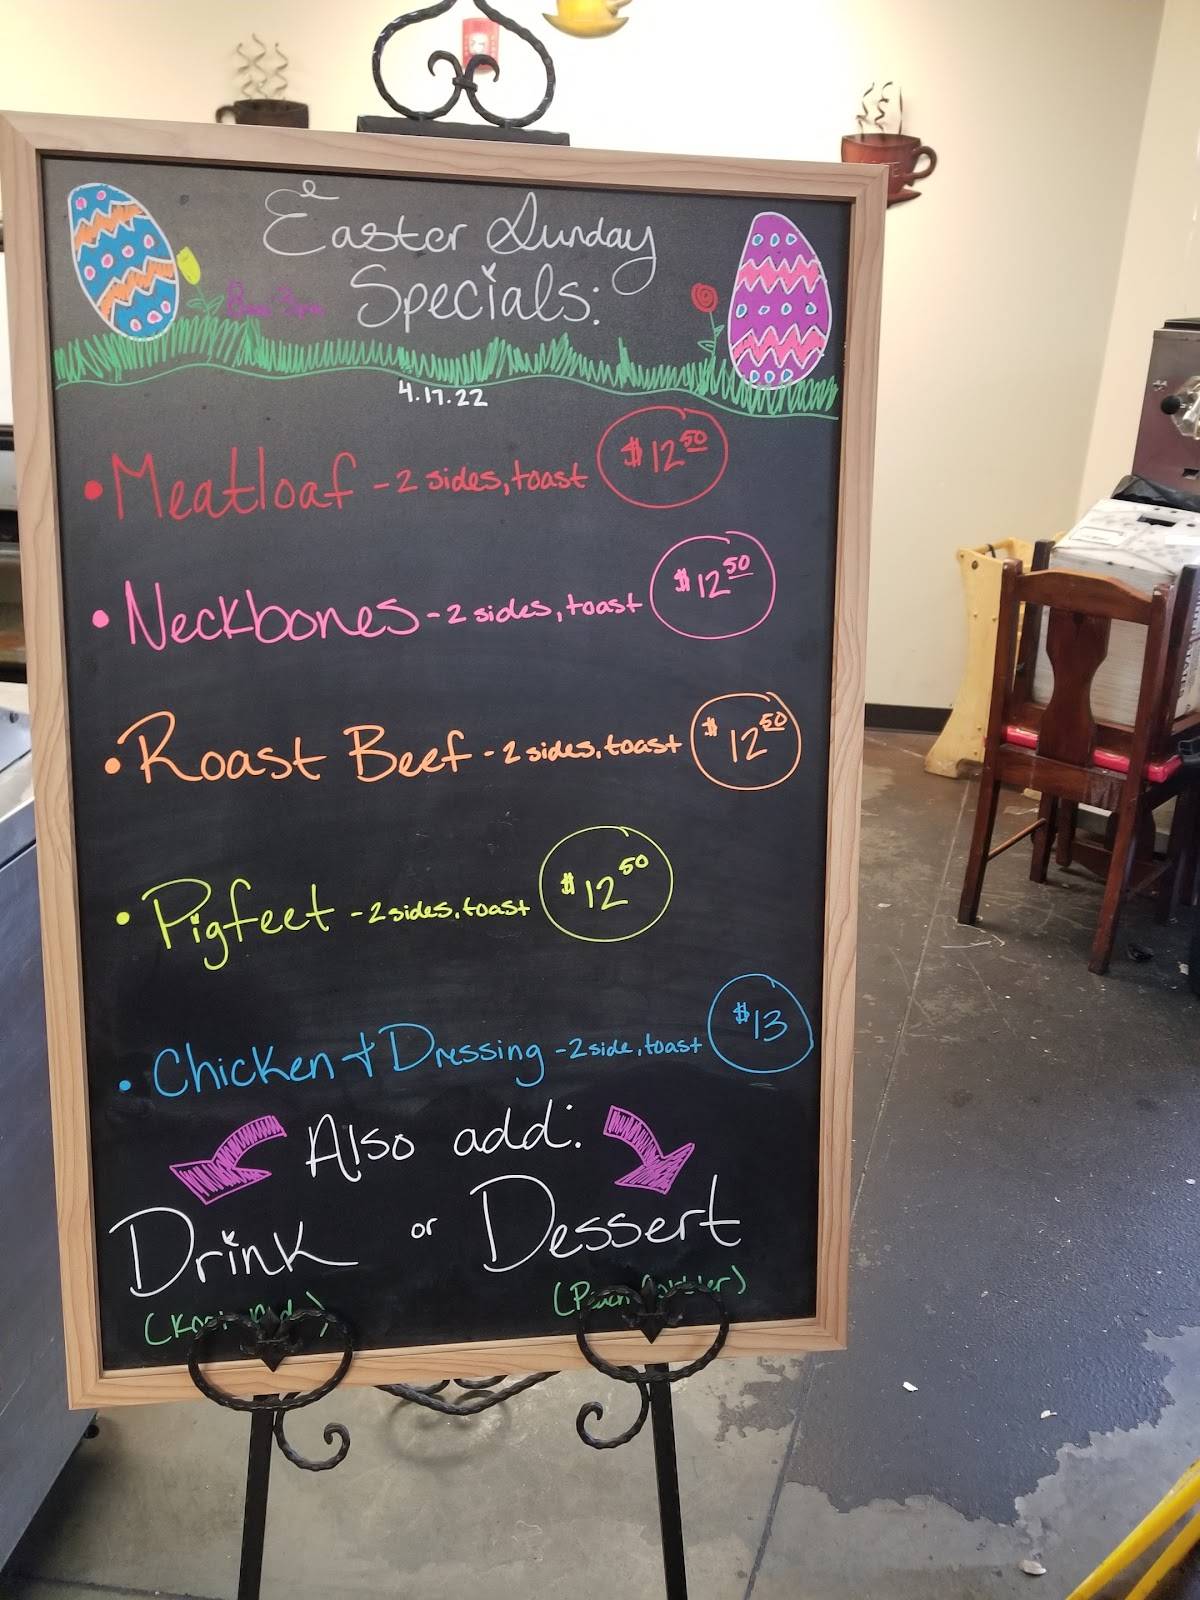 Easter Sunday
Specials:
4.17.22
• Meatloaf - 2 sides, toast $12 50
• Neckbones - 2 sides, toast $12 50
• Roast Beef - 2 sides, toast $12 50
• Pigfeet - 2 sides, toast $12 50
• Chicken & Dressing - 2 side, toast $13
Also add:
Drink or Dessert
(Peach Cobbler)